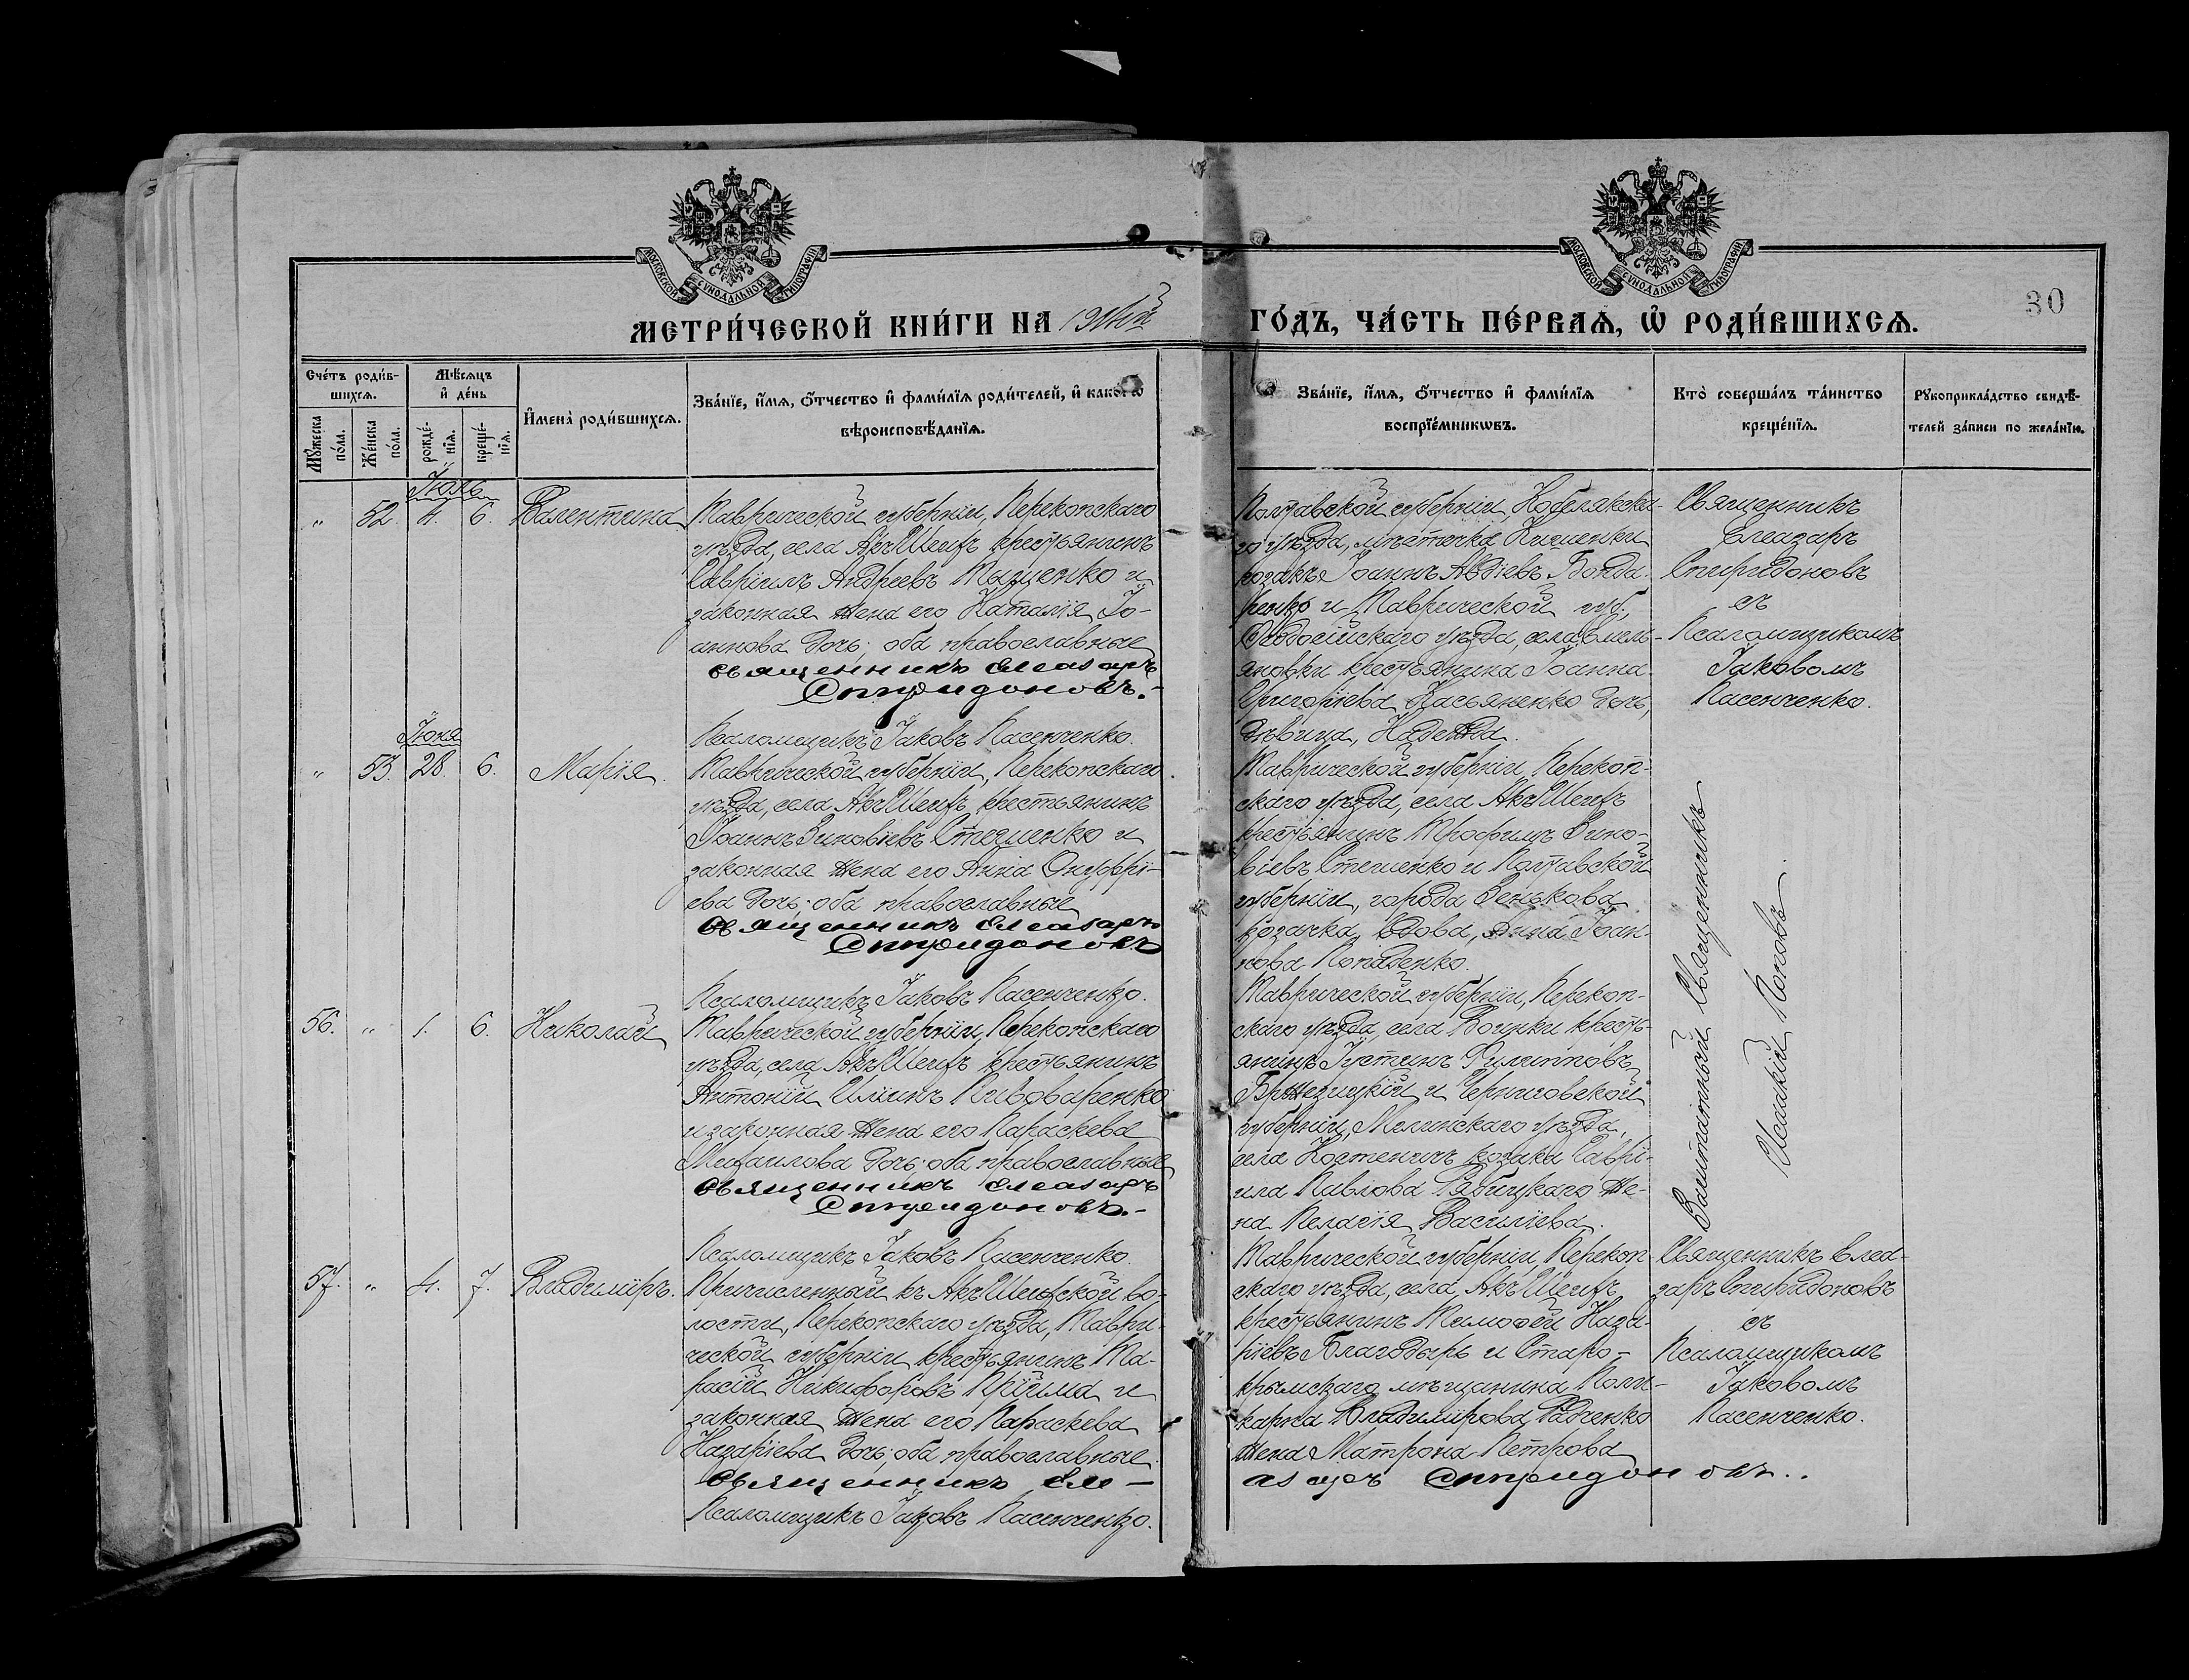 МОСКОВСКОЙ СУНОДАЛЬНОЙ ТИПОГРАФІИ
МОСКОВСКОЙ СУНОДАЛЬНОЙ ТИПОГРАФІИ
30
МЕТРИ́ЧЕСКОЙ КНИ́ГИ НА
ГО́ДЪ, ЧА́СТЬ ПЕ́РВАѦ, Ѡ РОДИ́ВШИХСѦ.
Сче́тъ роди́в-
шихсѧ.
Мꙋ́жеска по́ла.
Же́нска по́ла.
Мѣ́сѧцъ
и҆ де́нь
рожде́-
нїѧ.
креще́-
нїѧ.
И҆мена̀ роди́вшихсѧ.
Зва́нїе, и҆́мѧ, ѻ҆́тчество и҆ фами́лїѧ роди́телей, и҆ какогѡ
вѣроисповѣ́данїѧ.
Зва́нїе, и҆́мѧ, ѻ҆́тчество и҆ фами́лїѧ
воспрїе́мникѡвъ.
Кто̀ соверша́лъ та́инство
креще́нїѧ.
Рꙋкоприкла́дство свидѣ́-
телей за́писи по жела́нїю.
Іюль
„ 52. 4. 6. Валентина
Таврической губерніи, Перекопскаго
уѣзда, села Акъ Шеихъ крестьянинъ
Гавріилъ Андреевъ Мащенко и
законная жена его Наталія Іо-
аннова дочь; оба православные
Священникъ Елеазаръ
Спиридоновъ.-
Псаломщикъ Іаковъ Пасенченко.
Полтавской губерніи, Кобелякска-
го уѣзда, мѣстечка Кишенки
козакъ Іоаннъ Авдіевъ Бонда-
ренко и Таврической губ.,
Ѳеодосійскаго уѣзда, села Емель-
яновки крестьянина Іоанна
Григоріева Касьяненко дочь,
дѣвица, Надежда.
Священникъ
Елеазаръ
Спиридоновъ
съ
Псаломщикомъ
Іаковомъ
Пасенченко.
Іюня
„ 53. 28. 6. Марія.
Таврической губерніи, Перекопскаго
уѣзда, села Акъ Шеихъ крестьянинъ
Іоаннъ Зиновіевъ Стешенко и
законная жена его Анна Онуфрі-
ева дочь; оба православные
Священникъ Елеазаръ
Спиридоновъ
Псаломщикъ Іаковъ Пасенченко.
Таврической губерніи Перекоп-
скаго уѣзда, села Акъ Шеихъ
крестьянинъ Трофимъ Зино-
віевъ Стешенко и Полтавской
губерніи, города Зенькова
козачка, вдова, Анна Іоан-
нова
56. „ 1. 6. Николай
Таврической губерніи, Перекопскаго
уѣзда, села Акъ Шеихъ крестьянинъ
Антоній Иліинъ Пивоваренко
и законная жена его Параскева
Михаилова дочь; оба православные
Священникъ Елеазаръ
Спиридоновъ.-
Псаломщикъ Іаковъ Пасенченко.
Таврической губерніи, Перекоп-
скаго уѣзда, села Воинки кресть-
янинъ Іустинъ Филипповъ
и Черниговской
губерніи, Мглинскаго уѣзда,
села козака Гаврі-
ила Павлова же-
на Пелагія Васильева.
Священникъ
Исаакій Поповъ.
57. „ 4. 7. Владиміръ.
Причисленный къ Акъ Шеихской во-
лости, Перекопскаго уѣзда, Таври-
ческой губерніи крестьянинъ Та-
расій Никифоровъ Пріима и
законная жена его Параскева
Назаріева дочь; оба православные.
Священникъ Еле-
Псаломщикъ Іаковъ Пасенченко.
Таврической губерніи, Перекоп-
скаго уѣзда, села, Акъ Шеихъ
крестьянинъ Тимоѳей Наза-
ріевъ Благодырь и Старо-
крымскаго мѣщанина Поли-
карпа Владимірова Радченко
жена Матрона Петрова
азаръ Спиридоновъ..
Священникъ Елеа-
заръ Спиридоновъ
съ
Псаломщикомъ
Іаковомъ
Пасенченко.